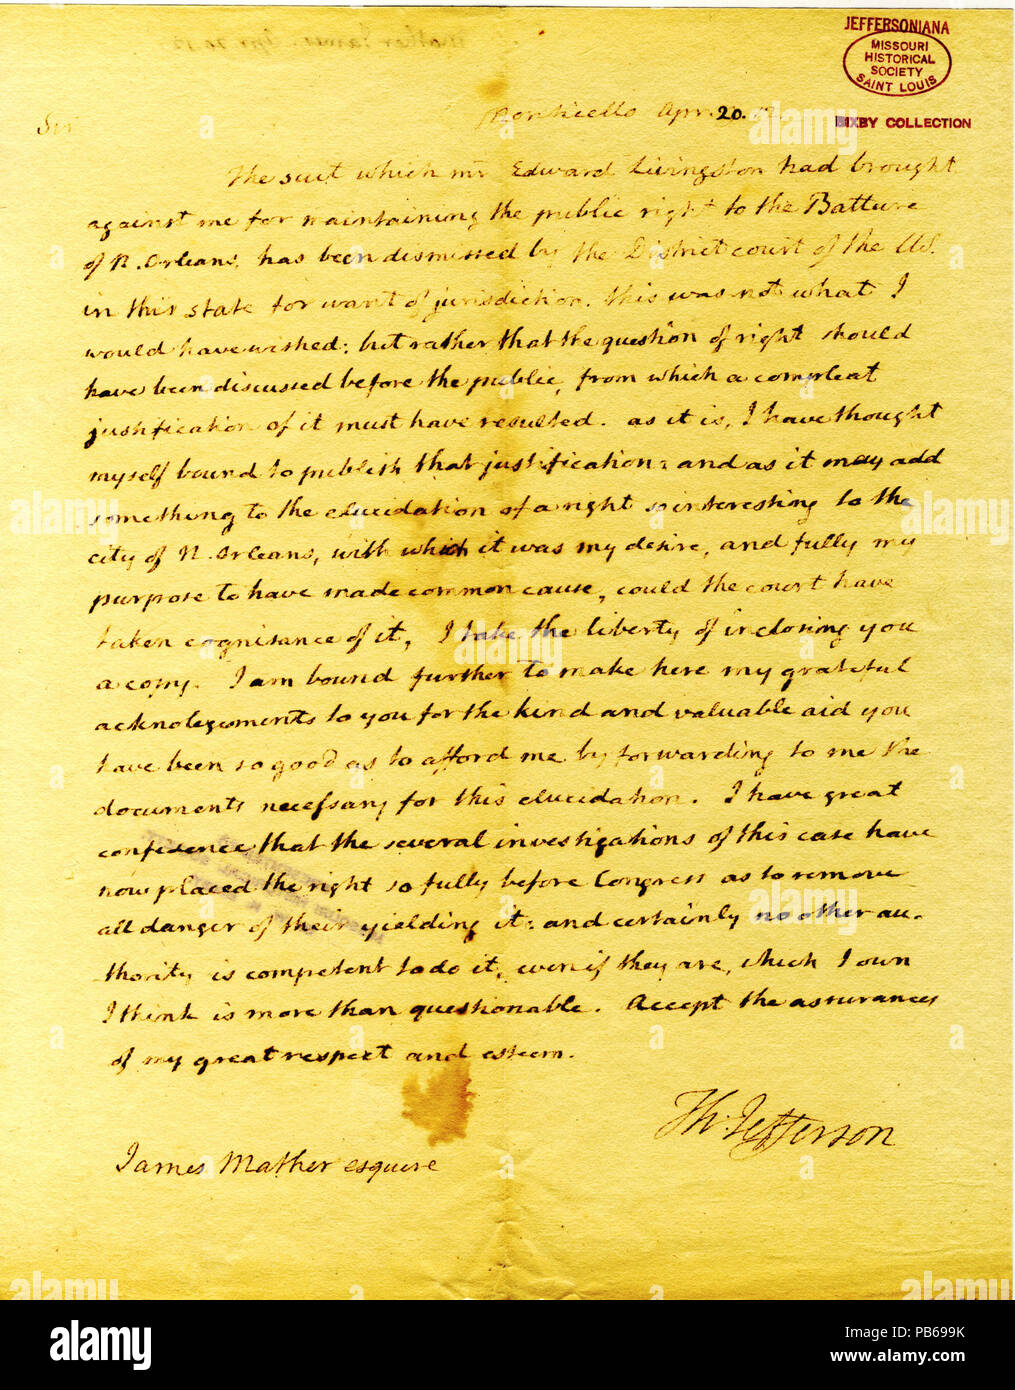 JEFFERSONIANA
MISSOURI
HISTORICAL
SOCIETY
SAINT LOUIS
BIXBY COLLECTION
Monticello Apr. 20. 12.
Sir
The suit which mr Edward Livingston had brought
against me for maintaining the public right to the Batture
of N. Orleans, has been dismissed by the District court of the US.
in this state for want of jurisdiction. this was not what I
would have wished: but rather that the question of right should
have been discussed before the public, from which a compleat
justification of it must have resulted. as it is, I have thought
myself bound to publish that justification: and as it may add
something to the elucidation of a right so interesting to the
city of N. Orleans, with which it was my desire, and fully my
purpose to have made common cause, could the court have
taken cognisance of it, I take the liberty of inclosing you
a copy. I am bound further to make here my grateful
acknolegements to you for the kind and valuable aid you
have been so good as to afford me by forwarding to me the
documents necessary for this elucidation. I have great
confidence that the several investigations of this case have
now placed the right so fully before Congress as to remove
all danger of their yielding it: and certainly no other au-
thority is competent to do it, even if they are, which I own
I think is more than questionable. Accept the assurances
of my great respect and esteem.
Th: Jefferson
James Mather esquire
alamy
Image ID: PB699K
www.alamy.com